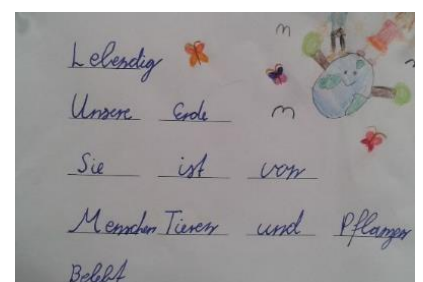 Lebendig
Unsere Erde
Sie ist von
Menschen Tieren und Pflanzen
Belebt